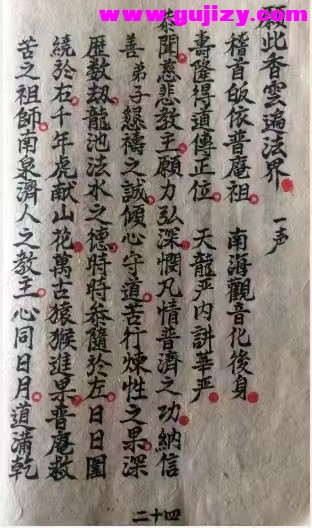 www.gujizy.com
願此香雲遍法界 一声
稽首皈依普庵祖 南海觀音化後身
壽隆得道傳正位 天龍严内講華严
恭聞慈悲教主願力弘深憫凡情普濟之功納信
善弟子懇禱之誠傾心守道苦行煉性之果深
歷数劫龍池法水之德時時恭隨於左日日圍
繞於右千年虎献山花萬古猿猴進果普庵救
苦之祖師南泉濟人之教主心同日月道满乾
二十四